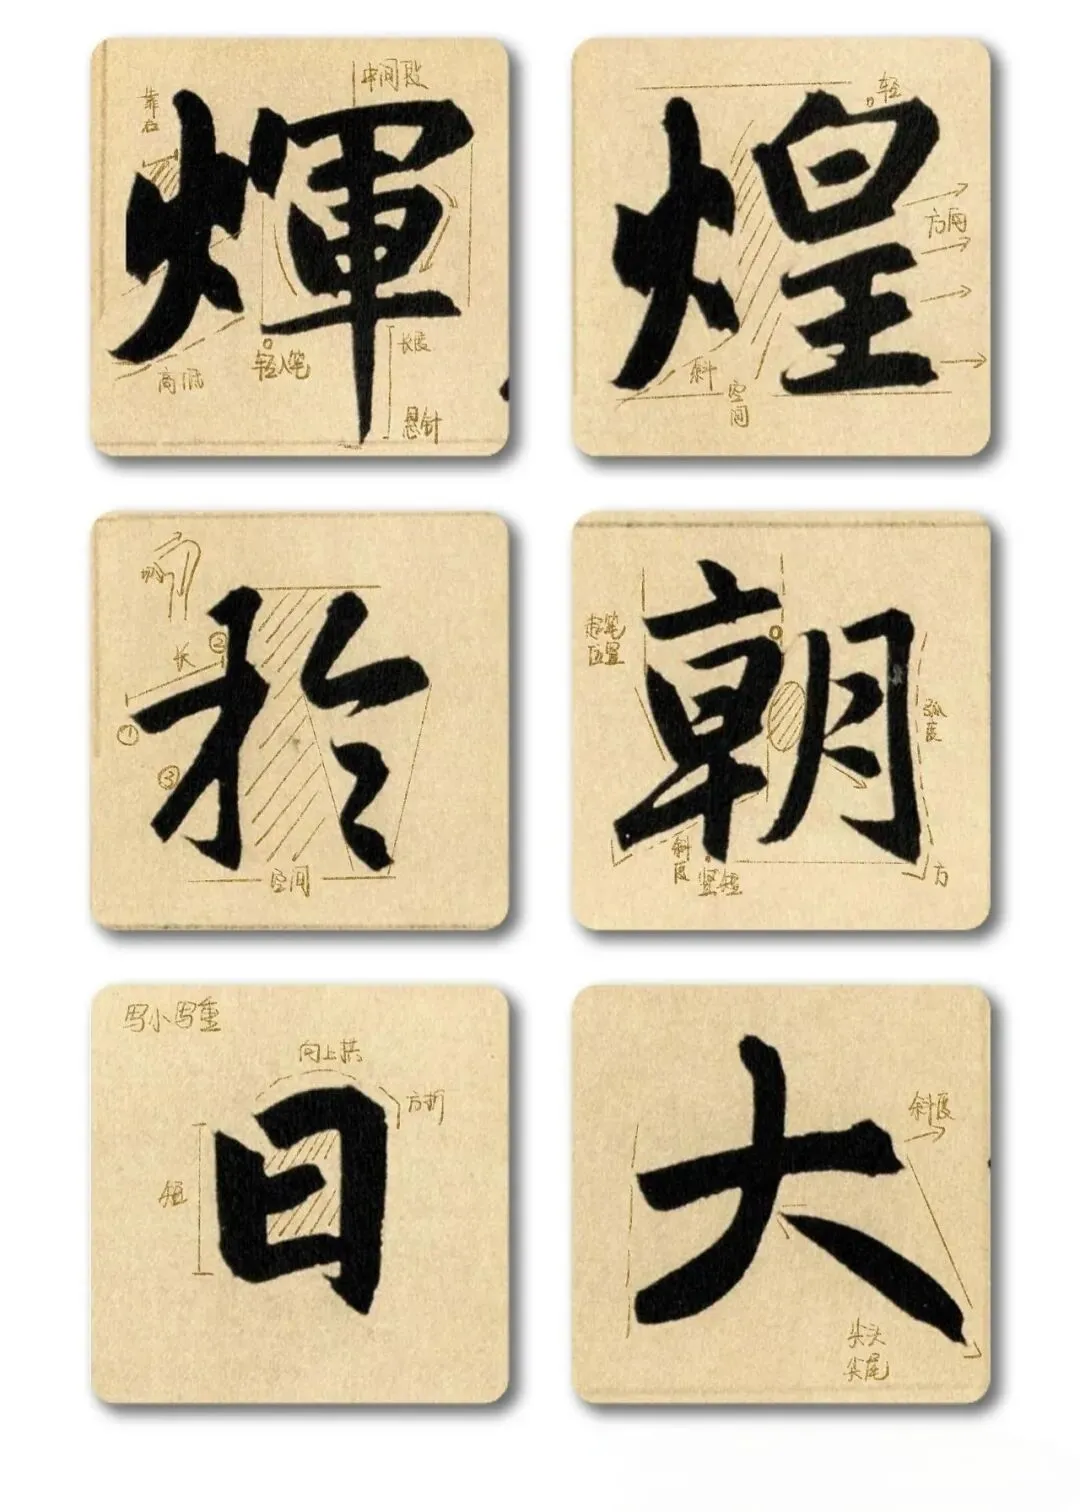 輝
中间段
靠右
高低
轻入笔
长度
悬针
煌
轻
方向
斜
空间
於
切
长
②
①
③
空间
朝
起笔
位置
弧度
斜度
竖短
方
日
写小写重
向上拱
方折
短
大
斜度
尖头
尖尾